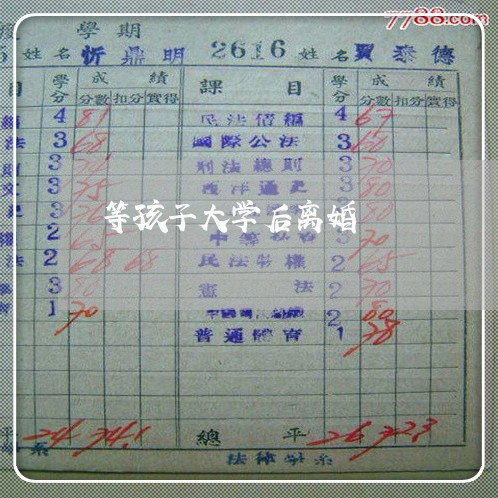 7788.com
學期
姓名 忻鼎明 2616 姓名 賈泰德
目 學分 成績 課目 學分 成績
分數 扣分 實得 分數 扣分 實得
4 81 民法債編 4 67
法 3 68 國際公法 3 60
3 刑法總則 3 70
3 75 西洋通史 3 80
3 3 80
等孩子大学后离婚
2 65 中等 3 70
法 2 68 68 民法物權 2 65
3 80 憲法 2 70
1 70 2 80
普通體育 1 78
平 24 74.1 總平 26 72.3
系 法律學系